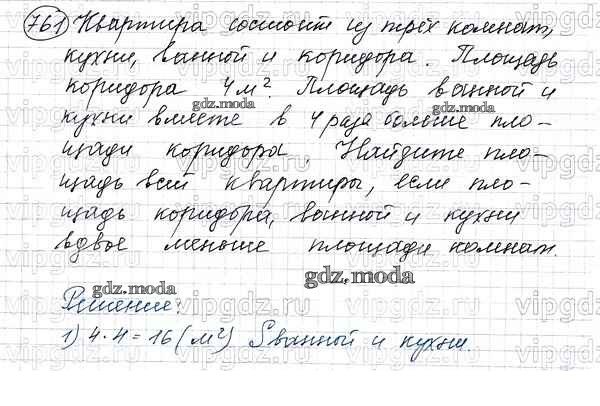 761 Квартира состоит из трёх комнат,
кухни, ванной и коридора. Площадь
коридора 4 м². Площадь ванной и
кухни вместе в 4 раза больше пло-
щади коридора. Найдите пло-
щадь всей квартиры, если пло-
щадь коридора, ванной и кухни
вдвое меньше площади комнат.
Решение:
1) 4·4=16 (м²) Sванной и кухни.
gdz.moda
gdz.moda
gdz.moda
gdz.moda
vipgdz.ru